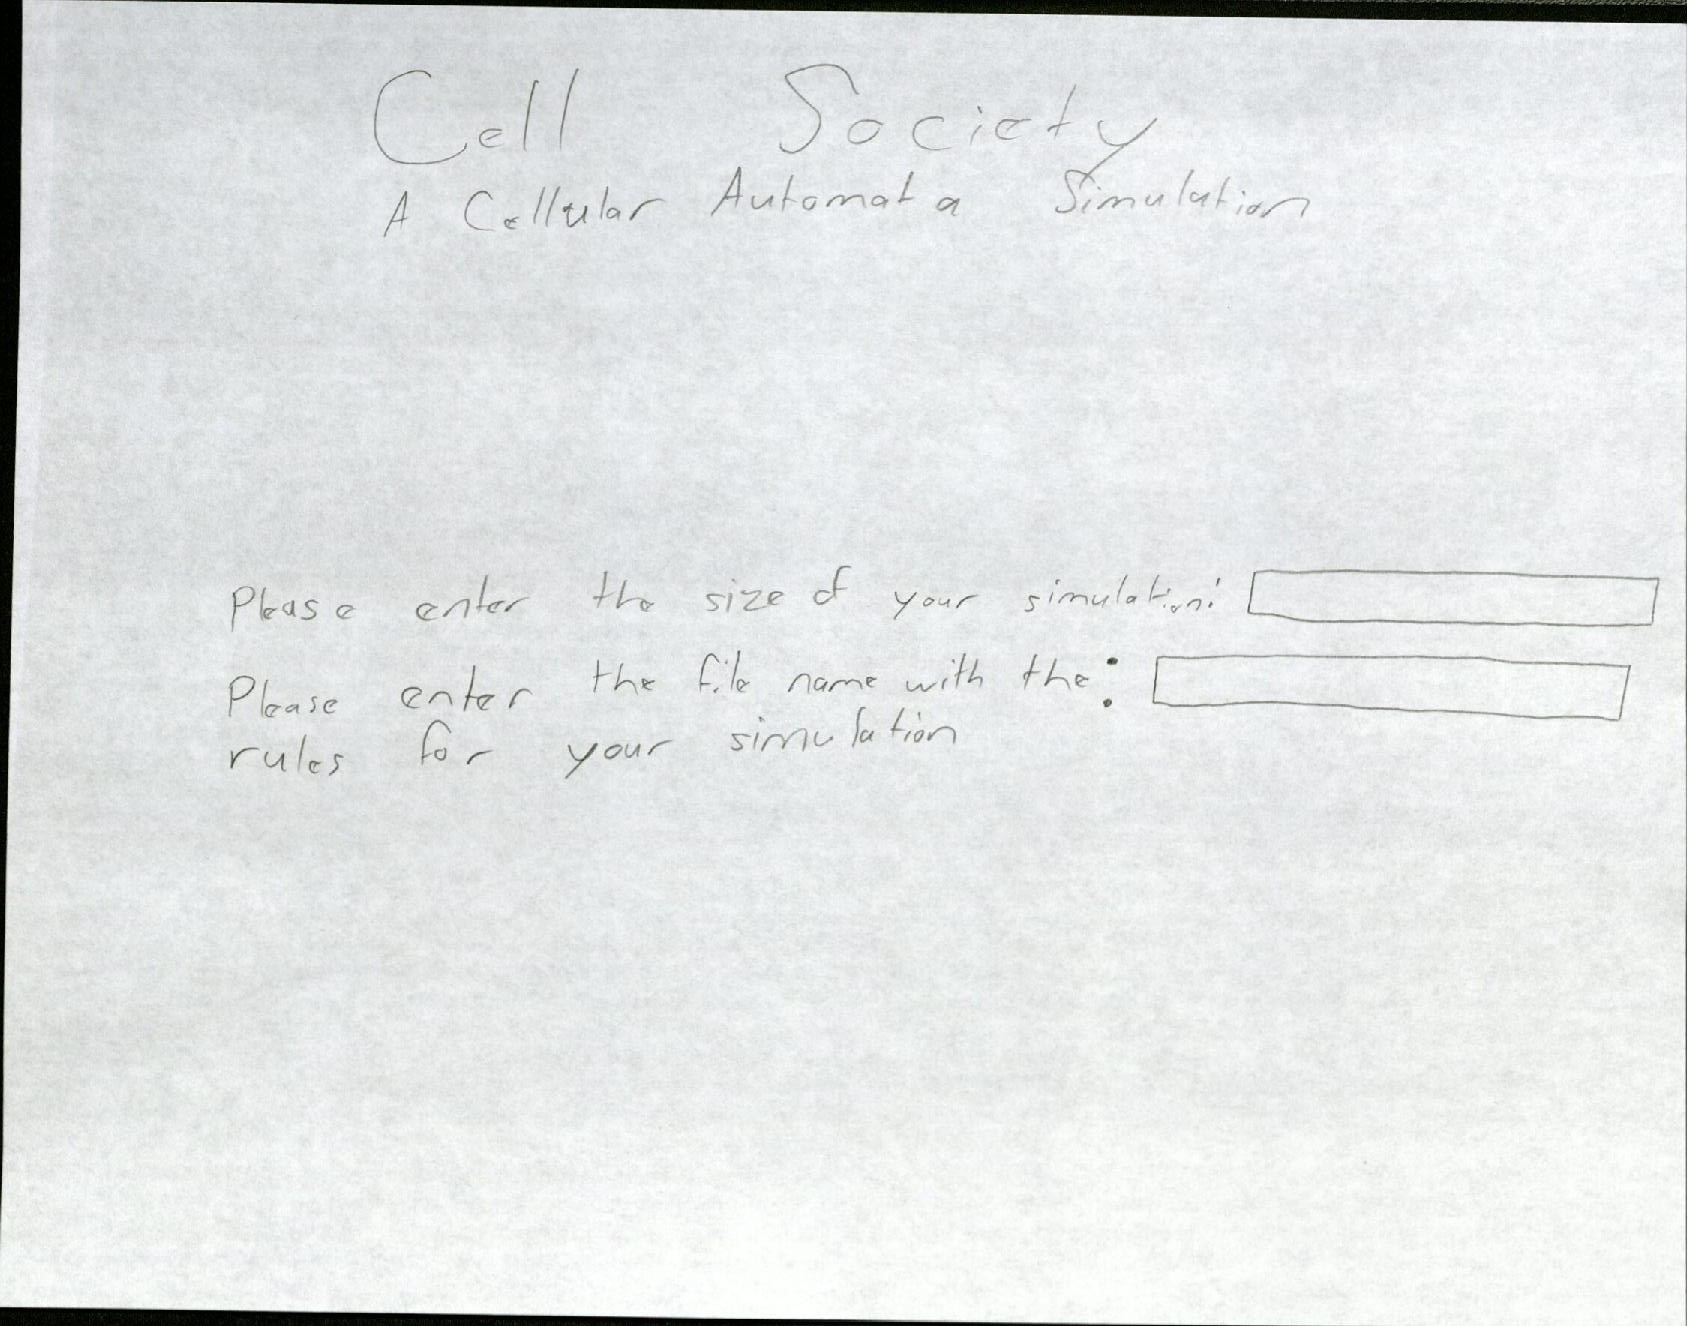 Cell Society
A Cellular Automata Simulation
Please enter the size of your simulation:
Please enter the file name with the:
rules for your simulation